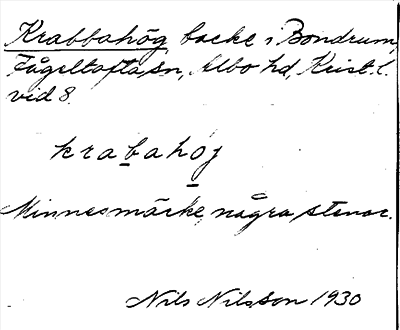 Krabbahög backe i Bondrum,
Fågeltofta sn, Albo hd, Krist. l.
vid 8.
krabahoj
Minnesmärke, några stenar.
Nils Nilsson 1930